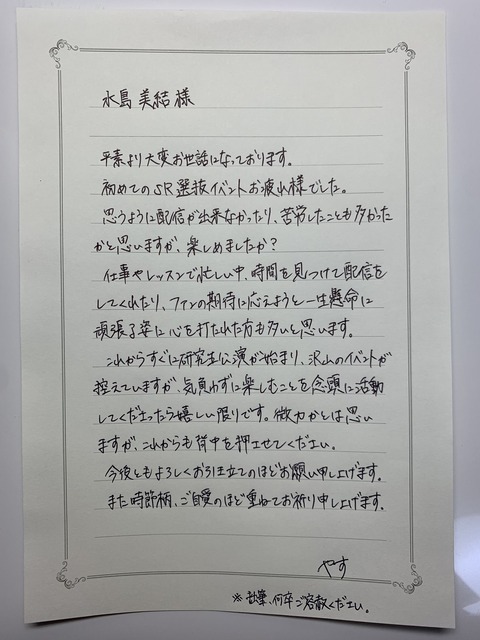 水島 美結 様
平素より大変お世話になっております。
初めてのSR選抜イベントお疲れ様でした。
思うように配信が出来なかったり、苦労したことも多かった
かと思いますが、楽しめましたか？
仕事やレッスンで忙しい中、時間を見つけて配信を
してくれたり、ファンの期待に応えようと一生懸命に
頑張る姿に心を打たれた方も多いと思います。
これからすぐに研究生公演が始まり、沢山のイベントが
控えていますが、気負わずに楽しむことを念頭に活動
してくださったら嬉しい限りです。微力かとは思い
ますが、これからも背中を押させてください。
今後ともよろしくお引き立てのほどお願い申し上げます。
また時節柄、ご自愛のほど重ねてお祈り申し上げます。
やす
※乱筆、何卒ご容赦ください。